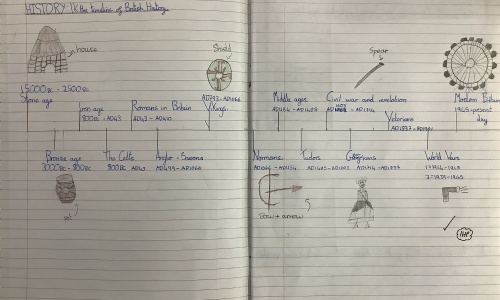 HISTORY the timeline of British History.
house
Shield
Spear
15000BC - 2500BC
Stone age
Iron age
800BC - AD43
Romans in Britain
AD43 - AD410
AD793 - AD1066
Vikings
Middle ages
Civil war and revolution
Victorians
AD1837 - AD1901
Modern Britain
1945 - present
day
Bronze age
The Celts
Anglo - Saxons
AD449 - AD1066
Normans
AD1066 - AD1154
Tudors
AD1485 - AD1603
Georgians
AD1714 - AD1837
World Wars
1914 - 1918
1939 - 1945
Pot
Bow + arrow